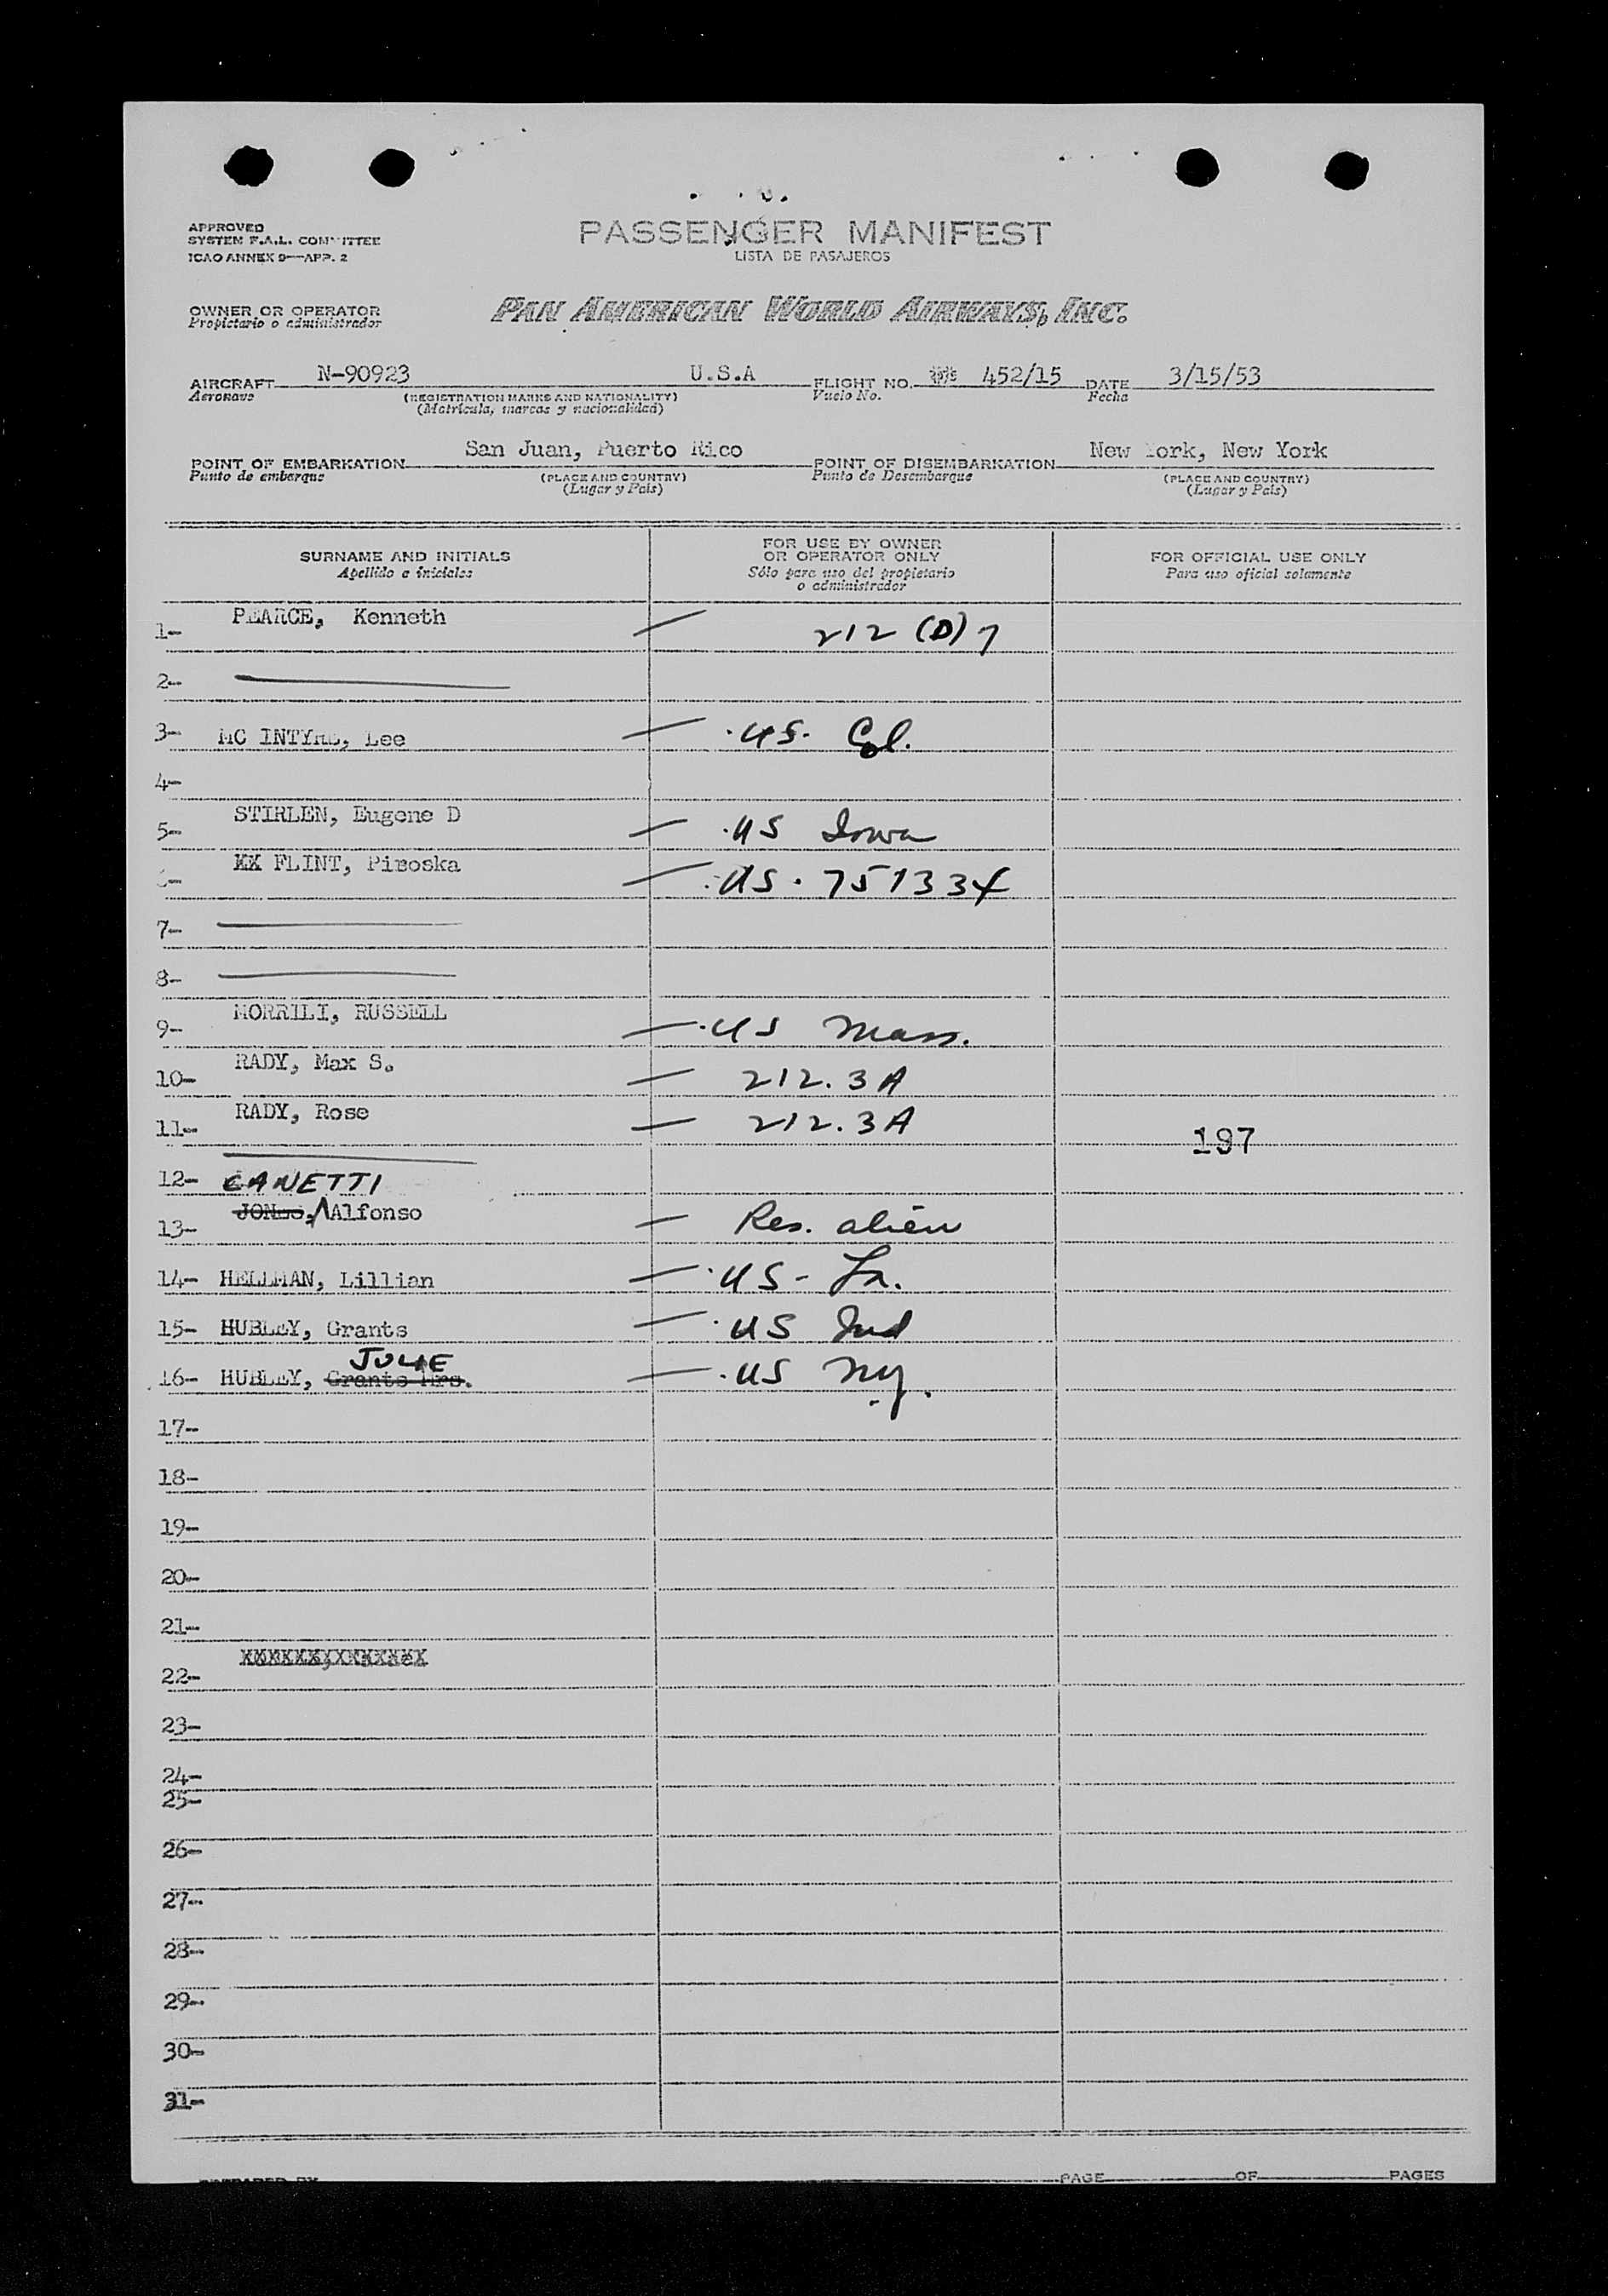 APPROVED
SYSTEM F.A.L. COMMITTEE
ICAO ANNEX 9—APP. 2
PASSENGER MANIFEST
LISTA DE PASAJEROS
OWNER OR OPERATOR
Propietario o administrador
PAN AMERICAN WORLD AIRWAYS, INC.
AIRCRAFT N-90923 U.S.A FLIGHT NO. 452/15 DATE 3/15/53
Aeronave (REGISTRATION MARKS AND NATIONALITY) Vuelo No. Fecha
(Matrícula, marcas y nacionalidad)
POINT OF EMBARKATION San Juan, Puerto Rico POINT OF DISEMBARKATION New York, New York
Punto de embarque (PLACE AND COUNTRY) Punto de Desembarque (PLACE AND COUNTRY)
(Lugar y País) (Lugar y País)
SURNAME AND INITIALS FOR USE BY OWNER OR OPERATOR ONLY FOR OFFICIAL USE ONLY
Apellido e iniciales Sólo para uso del propietario o administrador Para uso oficial solamente
1- PEARCE, Kenneth — 212 (D) 7
2-
3- MC INTYRE, Lee — US. Col.
4-
5- STIRLEN, Eugene D — US Iowa
6- XX FLINT, Piroska — US. 751334
7-
8-
9- MORRILI, RUSSELL — US Mass.
10- RADY, Max S. — 212.3A
11- RADY, Rose — 212.3A 197
12-
CANETTI
13- JONES, Alfonso — Res. alien
14- HELLMAN, Lillian — US - La.
15- HUBLEY, Grants — US Ind
JULIE
16- HUBLEY, Grants Mrs. — US NY.
17-
18-
19-
20-
21-
22-
23-
24-
25-
26-
27-
28-
29-
30-
31-
PREPARED BY PAGE OF PAGES